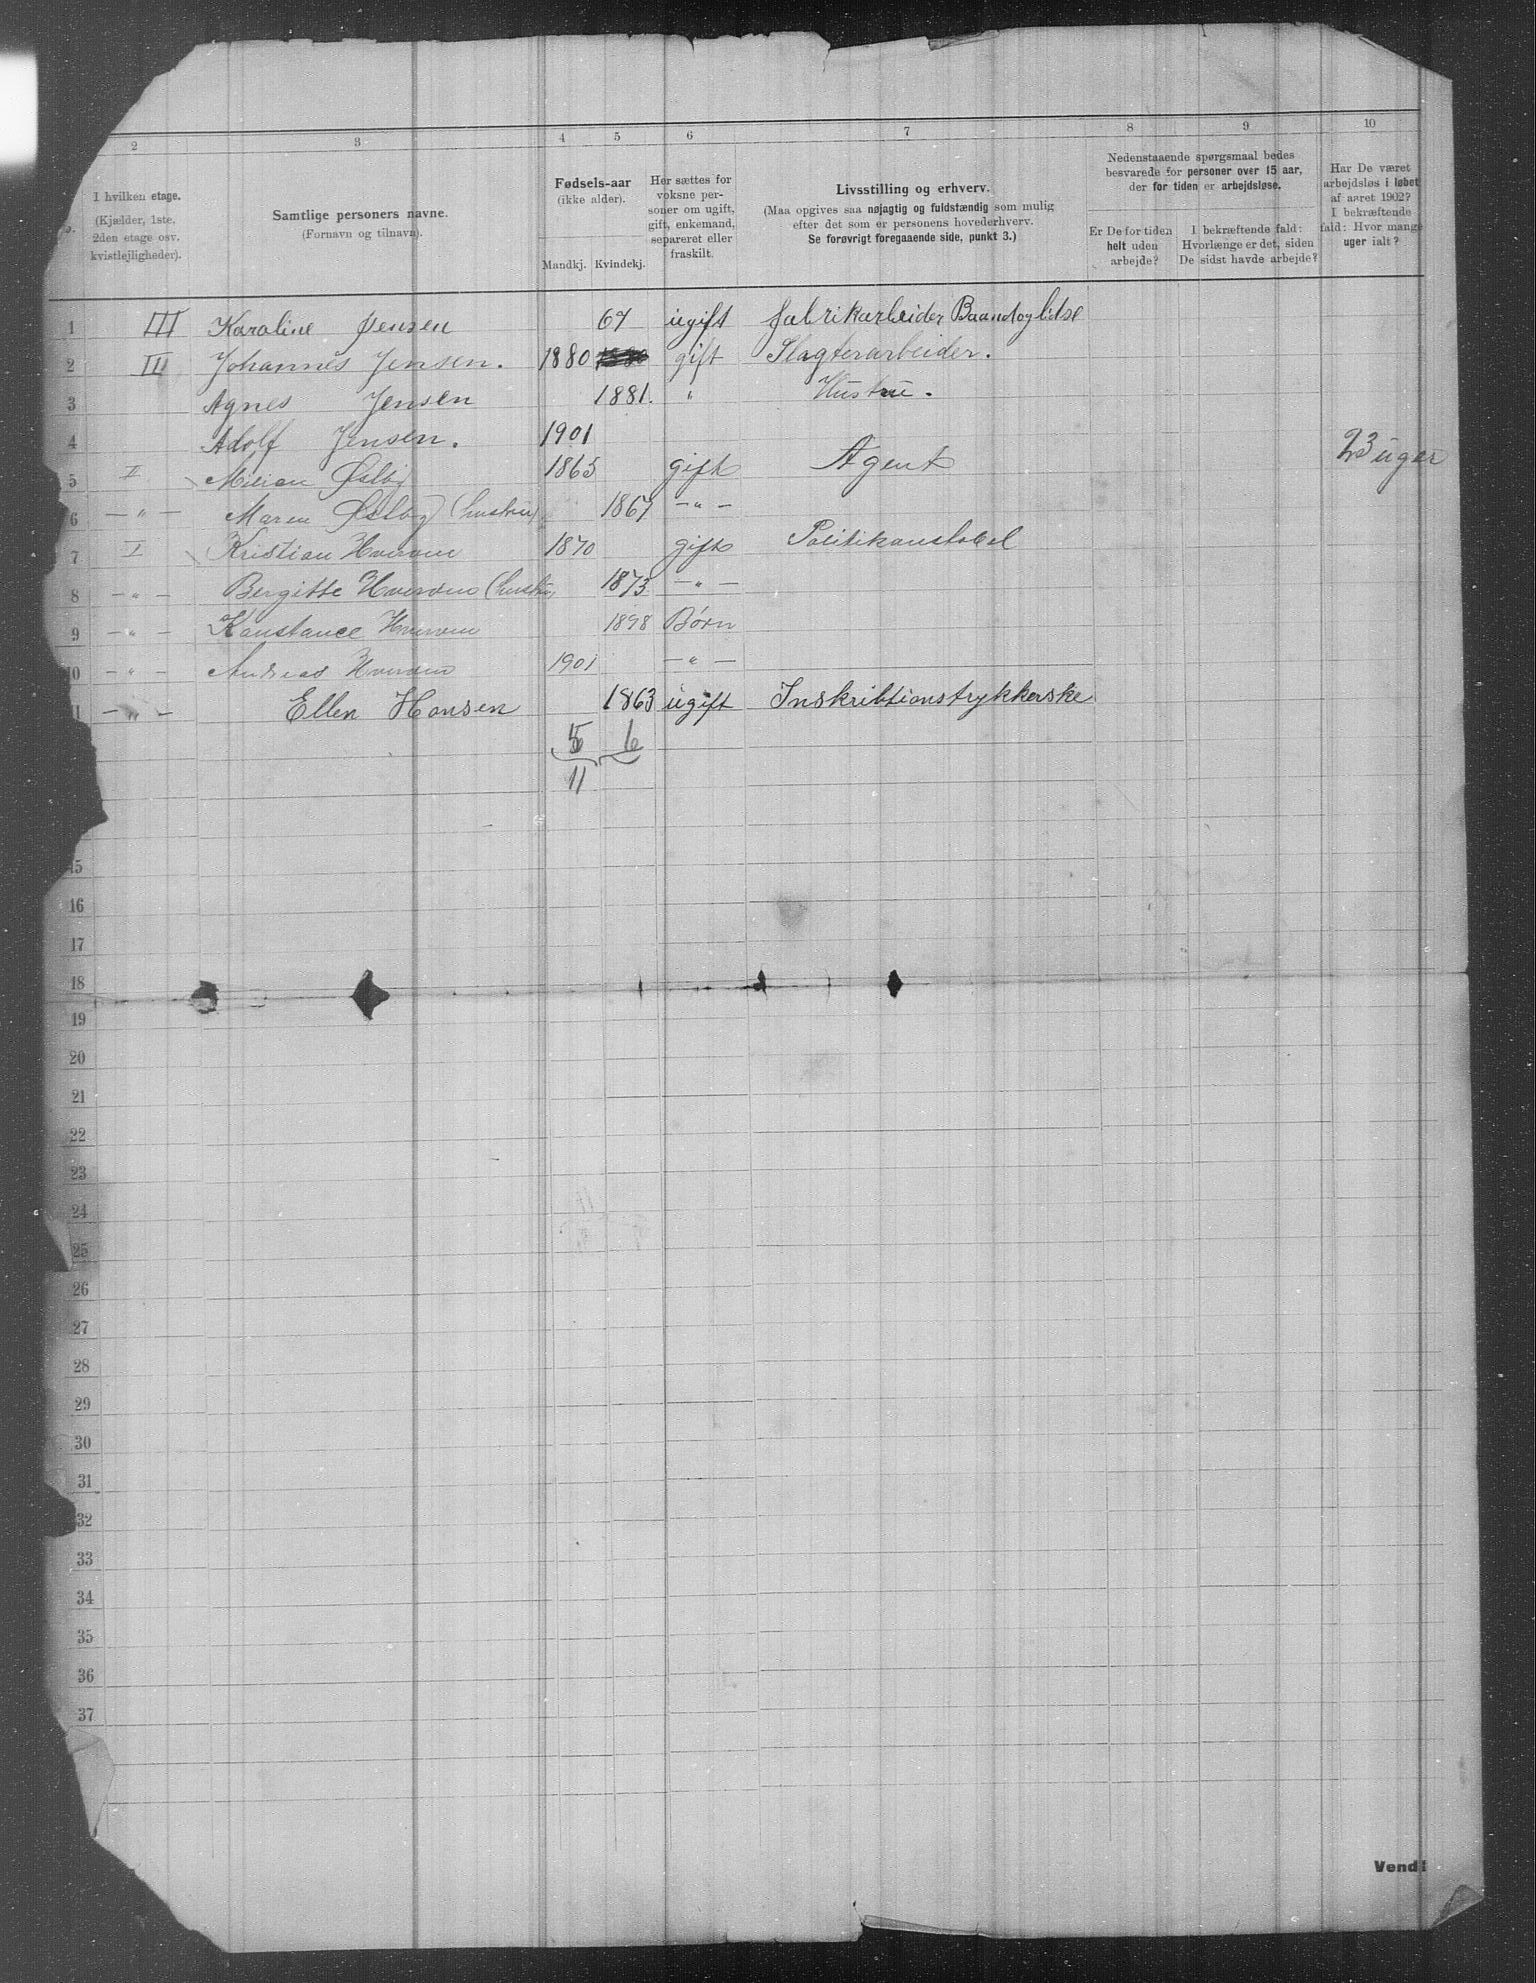 2 3 4 5 6 7 8 9 10
I hvilken etage.
(Kjælder, 1ste, 2den etage osv. kvistlejligheder).
Samtlige personers navne.
(Fornavn og tilnavn).
Fødsels-aar
(ikke alder).
Mandkj. Kvindekj.
Her sættes for voksne personer om ugift, gift, enkemand, separeret eller fraskilt.
Livsstilling og erhverv.
(Maa opgives saa nøjagtig og fuldstændig som mulig
efter det som er personens hovederhverv.
Se forøvrigt foregaaende side, punkt 3.)
Nedenstaaende spørgsmaal bedes
besvarede for personer over 15 aar,
der for tiden er arbejdsløse.
Er De for tiden
helt uden
arbejde?
I bekræftende fald:
Hvorlænge er det, siden
De sidst havde arbejde?
Har De været
arbejdsløs i løbet
af aaret 1902?
I bekræftende
fald: Hvor mange
uger ialt?
1 III Karoline Jensen 67 ugift fabrikarbeider
2 III Johannes Jensen. 1880 gift Slagterarbeider.
3 Agnes Jensen 1881. " Hustru.
4 Adolf Jensen. 1901
5 II Østby 1863 gift Agent 23 uger
6 — " — Maren Østby (hustru) 1867 — " —
7 I Kristian 1870 gift Politikonstabel
8 — " — Bergitte (hustru) 1873 — " —
9 — " — Konstance 1898 Børn
10 — " — Andreas 1901 — " —
11 — " — Ellen Hansen 1863 ugift Inskribtionstrykkerske
5 6
11
15
16
17
18
19
20
21
22
23
24
25
26
27
28
29
30
31
32
33
34
35
36
37
Vend!